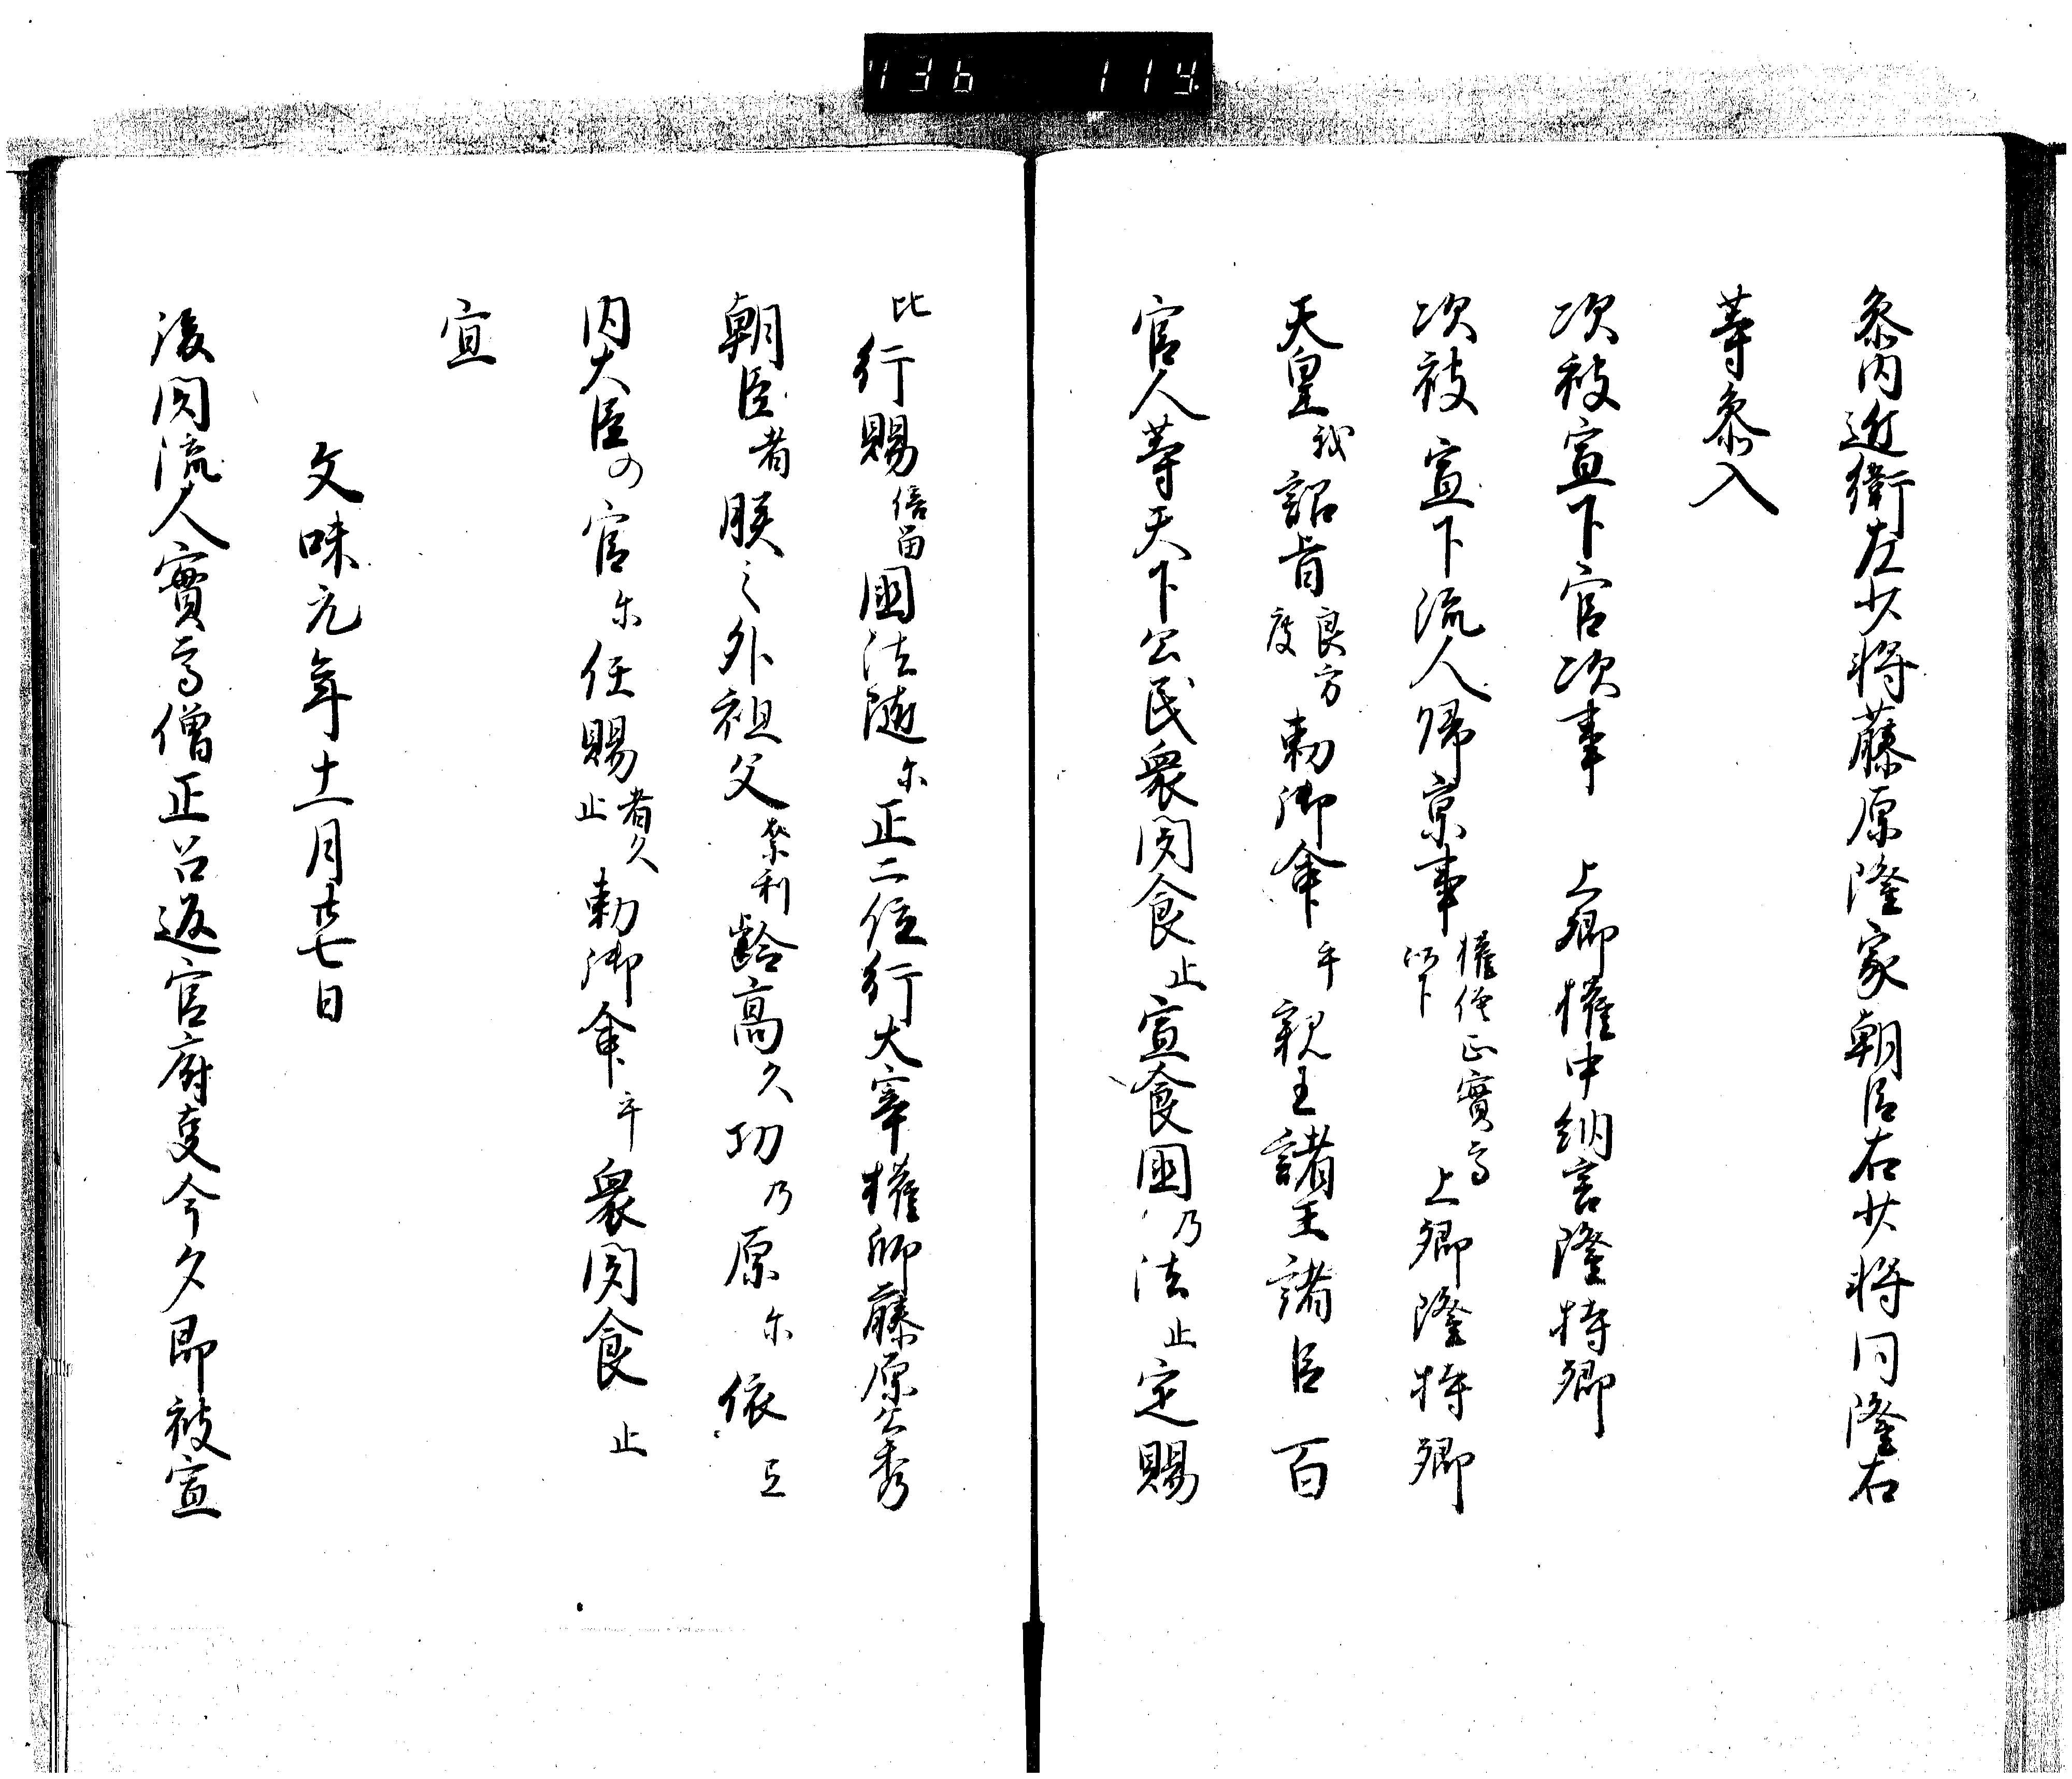 736 114
参内近衛左少将藤原隆家朝臣右少将同隆右
等参入
次被宣下官次事 上卿権中納言隆持卿
次被宣下流人帰京事 権僧正實高以下 上卿隆持卿
天皇我詔旨良方度勅御命乎親王諸王諸臣百
官人等天下公民衆聞食止宣食国乃法止定賜
比行賜倍留国法随尓正二位行大宰権帥藤原公秀
朝臣者朕之外祖父奈利齢高久功乃原尓依弖
内大臣の官尓任賜者久止勅御命乎衆聞食止
宣
文味元年十一月廿七日
後聞流人實高僧正召返官府支今夕即被宣